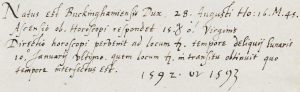 Natus est Buckinghamiensis Dux. 28. Augusti Ho: 16. M. 45.
Ascensio ob. Horoscopi respondet 15 ♉ o. Virginis
Directio horoscopi pervenit ad locum ♄. tempore deliquij lunaris
10. Januarij ultimo, quem locum ♄. in transitu obtinuit quo
tempore interfectus est.
1592. vel 1593